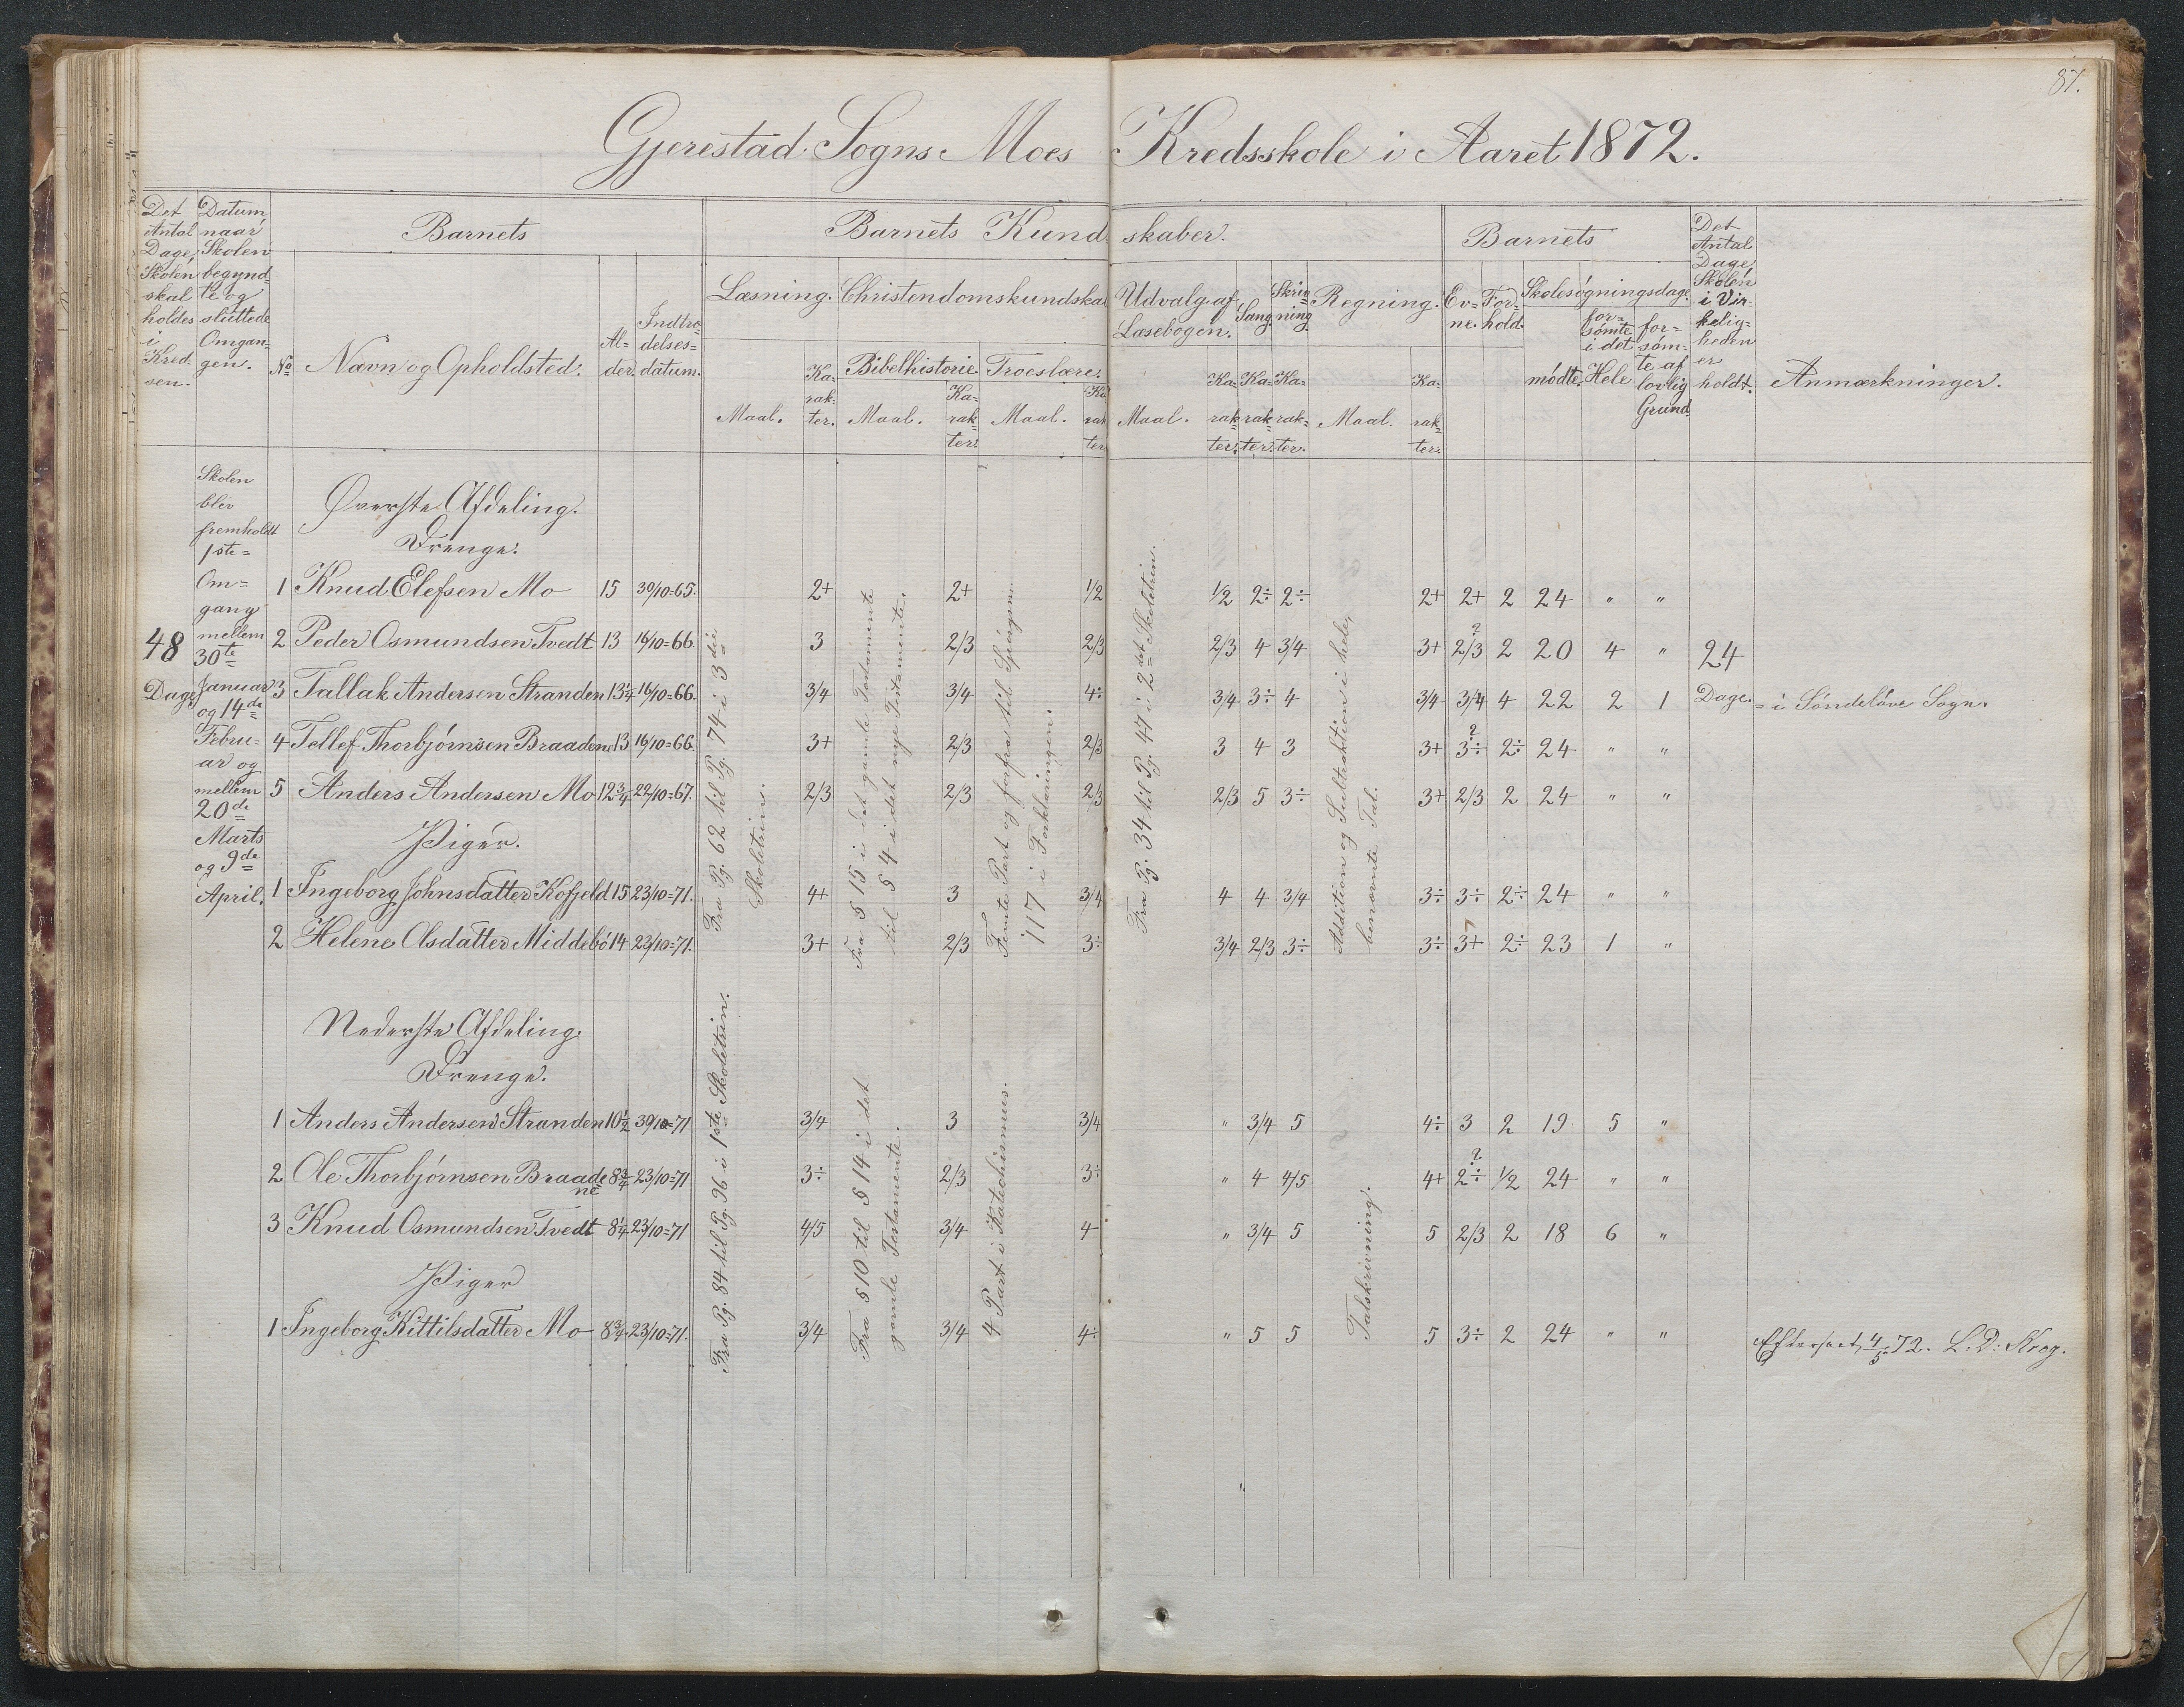 87.
Gjerestad Sogns Moes Kredsskole i Aaret 1872.
Det Antal Dage, Skolen skal holdes i Kredsen.
Datum, naar Skolen begyndte og sluttede Omgangen.
Barnets
No
Navn og Opholdsted.
Alder.
Indtrædelsesdatum.
Barnets Kundskaber.
Læsning.
Maal. Karakter.
Christendomskundskab
Bibelhistorie
Maal. Karakter.
Troeslære.
Maal. Karakter
Udvalg af Læsebogen.
Maal. Karakter.
Sang.
Karakter.
Skrivning.
Karakter.
Regning.
Maal. Karakter.
Barnets
Evne.
Forhold.
Skolesøgningsdage.
mødte.
forsømte i det Hele
forsømte af lovlig Grund
Det Antal Dage, Skolen i Virkeligheden er holdt.
Anmærkninger.
48 Dage
Skolen
blev
fremholdt
1ste
Om=
gang
mellem
30te
Januar
og 14de
Febru=
ar og
mellem
20de
Marts
og 9de
April.
Øverste Afdeling.
Drenge.
1 Knud Elefsen Mo 15 30/10=65. 2+ 2+ 1/2 1/2 2÷ 2÷ 2+ 2+ 2 24 " "
2 Peder Osmundsen Tvedt 13 16/10=66. 3 2/3 2/3 2/3 4 3/4 3+ 2/3? 2 20 4 " 24
3 Tallak Andersen Stranden 13 1/4 16/10=66. 3/4 3/4 4÷ 3/4 3÷ 4 3/4 3/4 4 22 2 1 Dage. = i Søndeløve Sogn.
4 Tellef Thorbjørnsen Braadene 13 16/10=66. 3+ 2/3 2/3 3 4 3 3+ 3÷? 2÷ 24 " "
5 Anders Andersen Mo 12 3/4 22/10=67. 2/3 2/3 2/3 2/3 5 3÷ 3+ 2/3 2 24 " "
Piger.
1 Ingeborg Johnsdatter Kofjeld 15 23/10=71. 4+ 3 3/4 4 4 3/4 3÷ 3÷ 2÷ 24 " "
2 Helene Olsdatter Middebø 14 23/10=71. 3+ 2/3 3÷ 3/4 2/3 3÷ 3÷ 3+ 2÷ 23 1 "
Fra Pg. 62 til Pg. 74 i 3die
Skoletrin.
Fra § 15 i det gamle Testamente
til § 4 i det nye Testamente.
Femte Part og forfra til Spørgsm.
117 i Forklaringen.
Fra Pg. 34 til Pg. 47 i 2det Skoletrin.
Addition og Subtraktion i hele,
benævnte Tal.
Nederste Afdeling.
Drenge.
1 Anders Andersen Stranden 10 1/2 30/10=71 3/4 3 3/4 " 3/4 5 4÷ 3 2 19 5 "
2 Ole Thorbjørnsen Braadene 8 3/4 23/10=71 3÷ 2/3 3÷ " 4 4/5 4+ 2÷? 1/2 24 " "
3 Knud Osmundsen Tvedt 8 1/4 23/10=71 4/5 3/4 4 " 3/4 5 5 2/3 2 18 6 "
Piger
1 Ingeborg Kittilsdatter Mo 8 3/4 23/10=71. 3/4 3/4 4÷ " 5 5 5 3÷ 2 24 " "
Fra Pg. 84 til Pg. 96 i 1ste Skoletrin.
Fra § 10 til § 14 i det
gamle Testamente.
4 Part i Katechismus.
Talskrivning.
Efterseet 4/5 72. L. D: Krog.